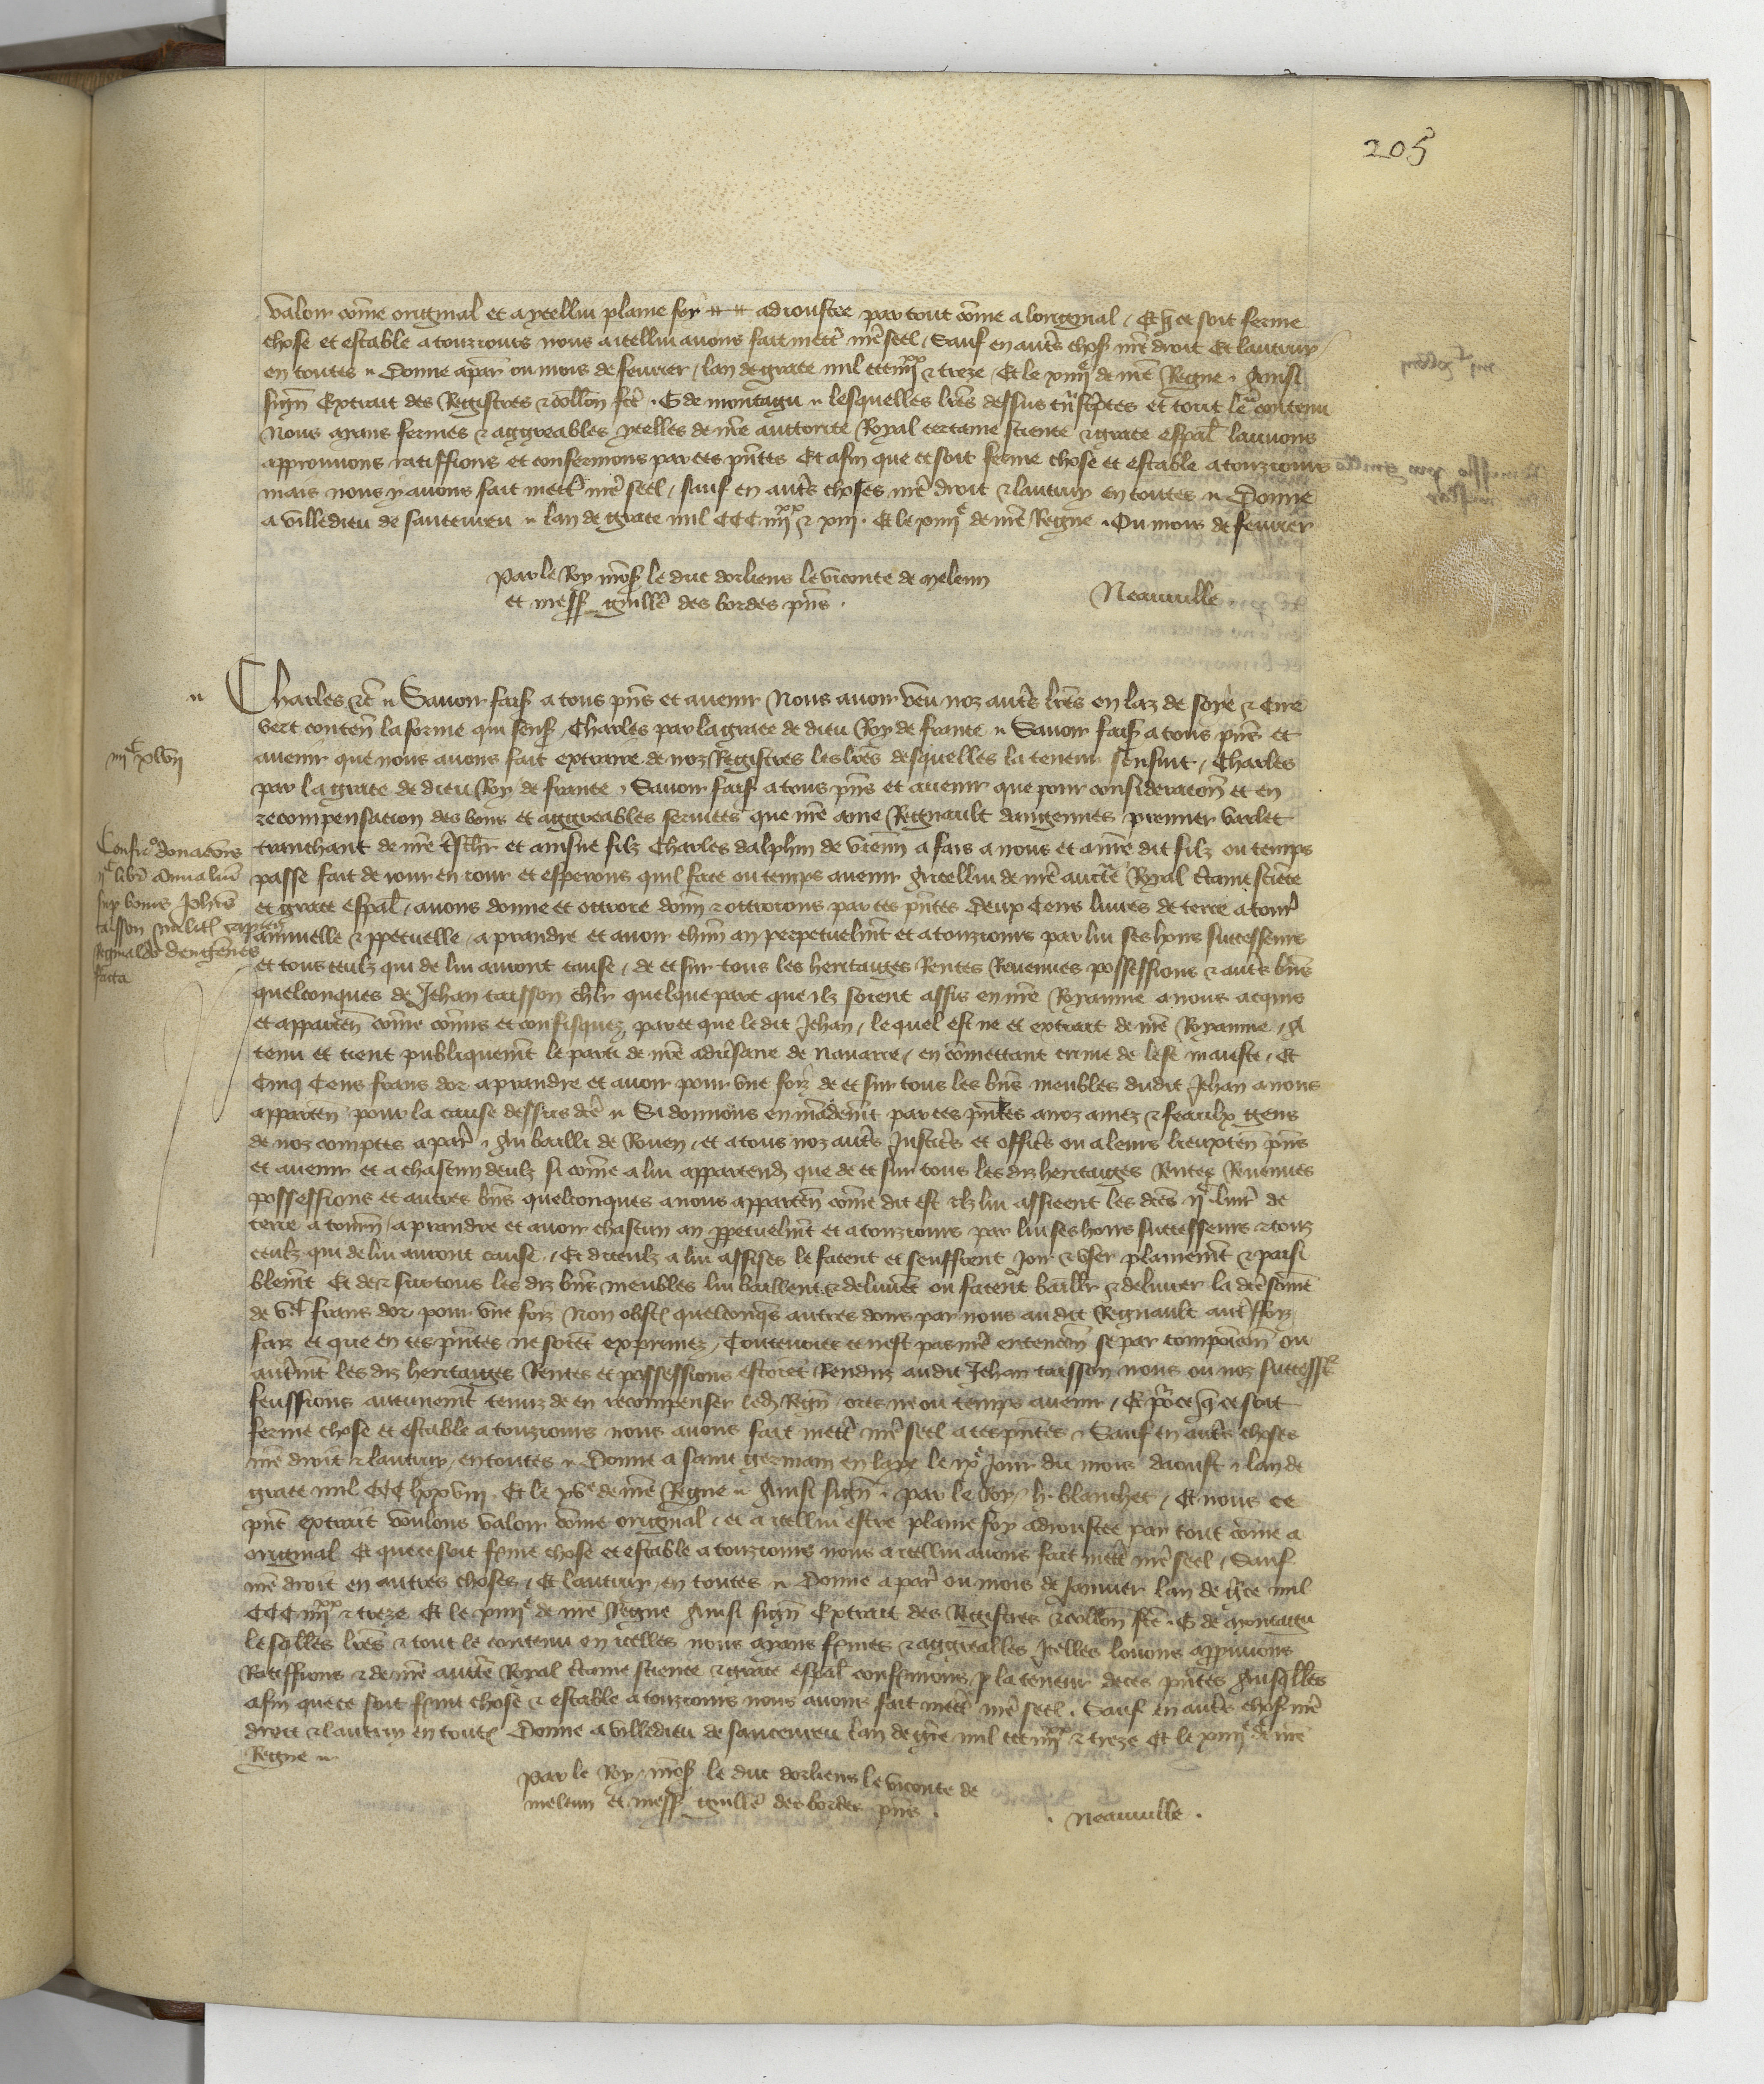 205
valoir co͞me original et a ycellui plaine foy adioustee par tout co͞me a loriginal / Et q̃ ce soit ferme
chose et estable a touziours nous a icellui auons fait mett̃ nr̃e seel / Sauf en aut̃s chos̃ nr̃e droit Et lautruy
en toutes ·· Donne a par̃ ou mois de feurier / lan de grace mil ccciiijxx & treze / Et le xiiije de nr̃e Regne · Ainsi
sign̄ Extrait des Registres & coll͞on fc̃e · G de montagu ·· lesquelles lr̃es dessus t͞nsc̃ptes et tout le contenu
Nous ayans fermes & aggreables ycelles de nr̃e auttorite Royal certaine science & grace esp̃al louuons
approuuons ratiffions et confermons par ces pñtes Et afin que ce soit ferme chose et estable a touziours
mais nous y auons fait mett̃ nr̃e seel / sauf en aut̃s choses nr̃e droit & lautruy en toutes ·· Donne
a villedieu de sauceureu ·· lan de grace mil CCC iiijxx & xiij · Et le xiiije de nr̃e Regne · Ou mois de feurier
Par le Roy mõs̃ le duc dorliens le viconte de meleun
et mess̃ guille̾ des bordes pñs ·
Neauuille
Charles &c̃ ·· Sauoir fais̃ a tous pñs et auenir Nous auoir veu noz aut̃s lr̃es en laz de soye & cire
vert conten̄ la forme qui sens̃ / Charles par la grace de dieu Roy de france ·· Sauoir fais̃ a tous pñs et
iijc xlvij
auenir que nous auons fait extraire de noz Registres les lr̃es desquelles la teneur sensuit / Charles
par la grace de dieu Roy de france · Sauoir fais̃ a tous pñs et auenir que pour consideracõn et en
recompensacion des bons et aggreables seruices que nr̃e ame Regnault dangennes premier varlet
Confir̃o donacõis
ijc libr̃ annaliũ
sup bonis Joh̃is
taisson milit̃
Reginaldo dengen̄es
facta
tranchant de nr̃e t̃sch̃r et ainsne filz Charles dalphin de vienñ a fais a nous et a nr̃e dit filz ou temps
passe fait de iour en iour et esperons quil face ou temps auenir A icellui de nr̃e aucte͞ Royal c̃taine scie͞ce
et grace esp̃al / auons donne et ottroie donñ & ottroions par ces pñtes Deux Cens liures de terre a tour̃
annuelle & ppetuelle / a prandre et auoir chñn an perpetuelmẽt et a touziours par lui ses hoirs successeurs
et tous ceulz qui de lui auront cause / de et sur tous les heritaiges Rentes Reuenues possessions & aut̃s biñs
quelconques de Jehan taisson chl̃r quelque part que ilz soient assis en nr̃e Royaume a nous acquis
et apparten̄ co͞me co͞mis et confisquez par ce que le dit Jehan / lequel est ne et extrait de nr̃e Royaume / A
tenu et tient publiquemẽt le parti de nr̃e aduersaire de Nauarre / en co͞mettant crime de lese mauste / Et
Cinq Cens frans dor a prandre et auoir pour vne foiz de et sur tous les biñs meubles dudit Jehan a nous
apparten̄ pour la cause dessus dc̃e ·· Si donnons en mãdemẽt par ces pñtes a noz amez & feaulx gens
de noz comptes a par̃ · Au bailli de Rouen / et a tous noz aut̃s Justic̃s et offic̃s ou a leurs lieuxten̄ pñs
et auenir et a chascun deulz si co͞me a lui appartend̃ que de et sur tous les diz heritaiges Rentes Reuenues
possessions et autres biñs quelconques a nous apparten̄ co͞me dit est ilz lui assieent les dc̃es ijc liur̃ de
terre a tourñ / a prandre et auoir chascun an ppetuelmẽt et a touziours par lui ses hoirs successeurs & touz
ceulz qui de lui auront cause / Et diceulz a lui assises le facent et seuffrent joir & vser plainemẽt & paisi
blemẽt Et de & sur tous les diz biñs meubles lui baillent & deliurẽt ou facent baill̃r & deliurer la dc̃e so͞me
de vc frans dor pour vne foiz Non obst̃ quelconq̃s autres dons par nous audit Regnault aut̃ffoiz
faiz et que en ces pñtes ne soiẽt exprimez / Toutesuoies ce nest pas nr̃e entencõn se par composicõn ou
aut̃mẽt les diz heritaiges Rentes et possessions estoiẽt Renduz audit Jehan taisson nous ou noz success̃
feussions aucunemẽt tenuz de en recompenser led̃ Regñ / ores ne ou temps auenir / Et p̃ ce q̃ ce soit
ferme chose et estable a touziours nous auons fait mett̃ nr̃e seel a ces pñtes · Sauf en aut̃s choses
nr̃e droit & lautruy en toutes ·· Donne a saint germain en laye le ixe Jour du mois daoust · lan de
grace mil CCC lxxviij · Et le xve de nr̃e Regne ·· Ainsi sign̄ · par le Roy / h · blanchet / Et nous ce
pñt extrait voulons valoir co͞me original / et a icellui estre plaine foy adioustee par tout co͞me a
original Et que ce soit f̃me chose et estable a touziours nous a icellui auons fait mett̃ nr̃e seel / Sauf
nr̃e droit en autres choses / Et lautruy en toutes ·· Donne a par̃ ou mois de Januier lan de gr̃ce mil
CCC iiijxx & treze Et le xiiije de nr̃e Regne Ainsi sign̄ Extrait des Registres & coll͞on fc̃e · G de montagu
lesq̃lles lr̃es & tout le contenu en icelles nous ayans f̃mes & aggreables Icelles louons app̃uuons
Ratiffions & de nr̃e aucte͞ Royal c̃taine science & grace esp̃al conf̃mons p la teneur de ces pñtes Ausq̃lles
afin que ce soit f̃me chose & estable a touziours nous auons fait mett̃ nr̃e seel · Sauf en aut̃s chos̃ nr̃e
droit & lautruy en tout̃ Donne a villedieu de sauceureu lan de gr̃ce mil ccc iiijxx & treze Et le xiiije de nr̃e
Regne ··
Par le Roy / mõs̃ le duc dorliens le viconte de
meleun et mess̃ guille̾ des bordes pñs ·
· Neauuille ·